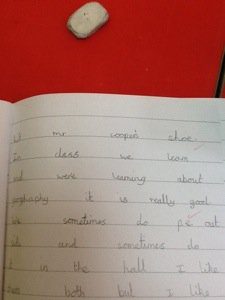 mr cooper's shoe
In class we lean
and were learning about
geography it is really good
we sometimes do p.e out
and sometimes do
in the hall I like
both but I like